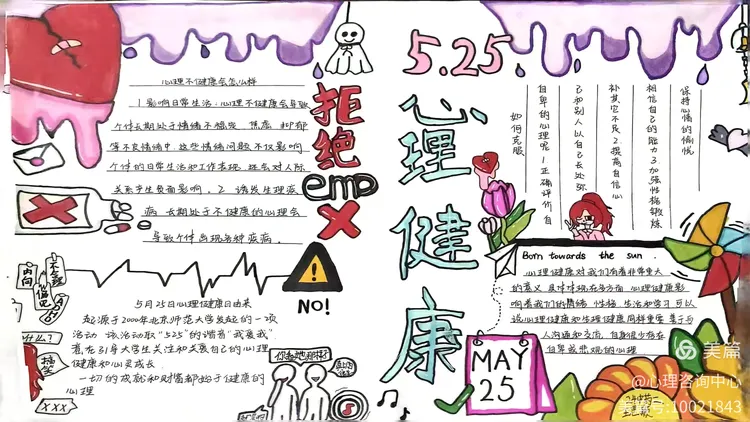 心理不健康会怎么样
1.影响日常生活:心理不健康会导致
个体长期处于情绪不稳定 焦虑 抑郁
等不良情绪中.这些情绪问题不仅影响
个体的日常生活和工作表现.还会对人际
关系产生负面影响.2.诱发生理疾
病 长期处于不健康的心理会
导致个体出现各种疾病.
拒绝
emo
NO!
5月25日心理健康日由来
起源于2000年北京师范大学发起的一项
活动 该活动取"525"的谐音"我爱我"
着在引导大学生关注和关爱自己的心理
健康和心灵成长
一切的成就和财富都始于健康的
心理
内向
什么?
xxx
5.25
心理健康
如何克服
自卑的心理呢 1.正确评价自
己和别人 以自己长处弥
补其它不足 2.提高自信心
相信自己的能力 3.加强性格锻炼
保持心情的愉悦
Born towards the sun.
心理健康对我们有着非常重大
的意义 具体体现在多方面 心理健康影
响着我们的情绪 性格 生活和学习 可以
说心理健康和生理健康同样重要 善于与
人沟通和交流 自身很少存在
自卑或悲观的心理
MAY
25
美篇
@心理咨询中心
美篇号:10021843